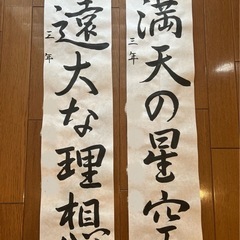 満天の星空
三年
遠大な理想
三年